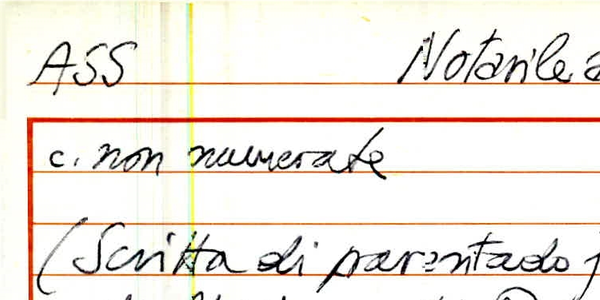 ASS Notarile
c. non numerate
(Scritta di parentado